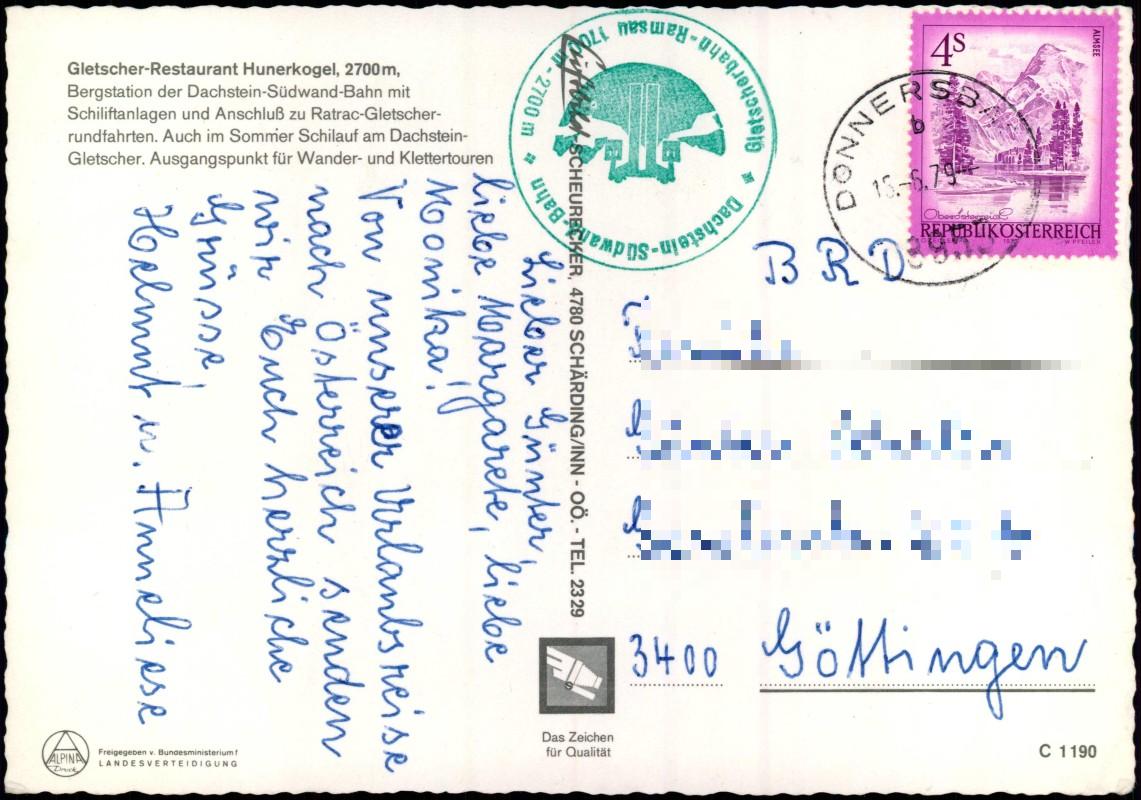 Gletscher-Restaurant Hunerkogel, 2700 m,
Bergstation der Dachstein-Südwand-Bahn mit
Schiliftanlagen und Anschluß zu Ratrac-Gletscher-
rundfahrten. Auch im Sommer Schilauf am Dachstein-
Gletscher. Ausgangspunkt für Wander- und Klettertouren
Lieber Günter,
liebe Margarete, liebe
Monika!
Von unserer Urlaubsreise
nach Österreich senden
wir Euch herzliche
Grüsse,
Helmut u. Anneliese
Dachstein-Südwand-Bahn
Gletscherbahn-Ramsau 1700 m - 2700 m
SCHEURECKER, 4780 SCHÄRDING/INN - OÖ. - TEL. 23 29
4 S
ALMSEE
Oberösterreich
REPUBLIK ÖSTERREICH
DONNERSBACH
b
15.-6.79
BRD
3400 Göttingen
Das Zeichen
für Qualität
ALPINA
Druck
Freigegeben v. Bundesministerium f
LANDESVERTEIDIGUNG
C 1190